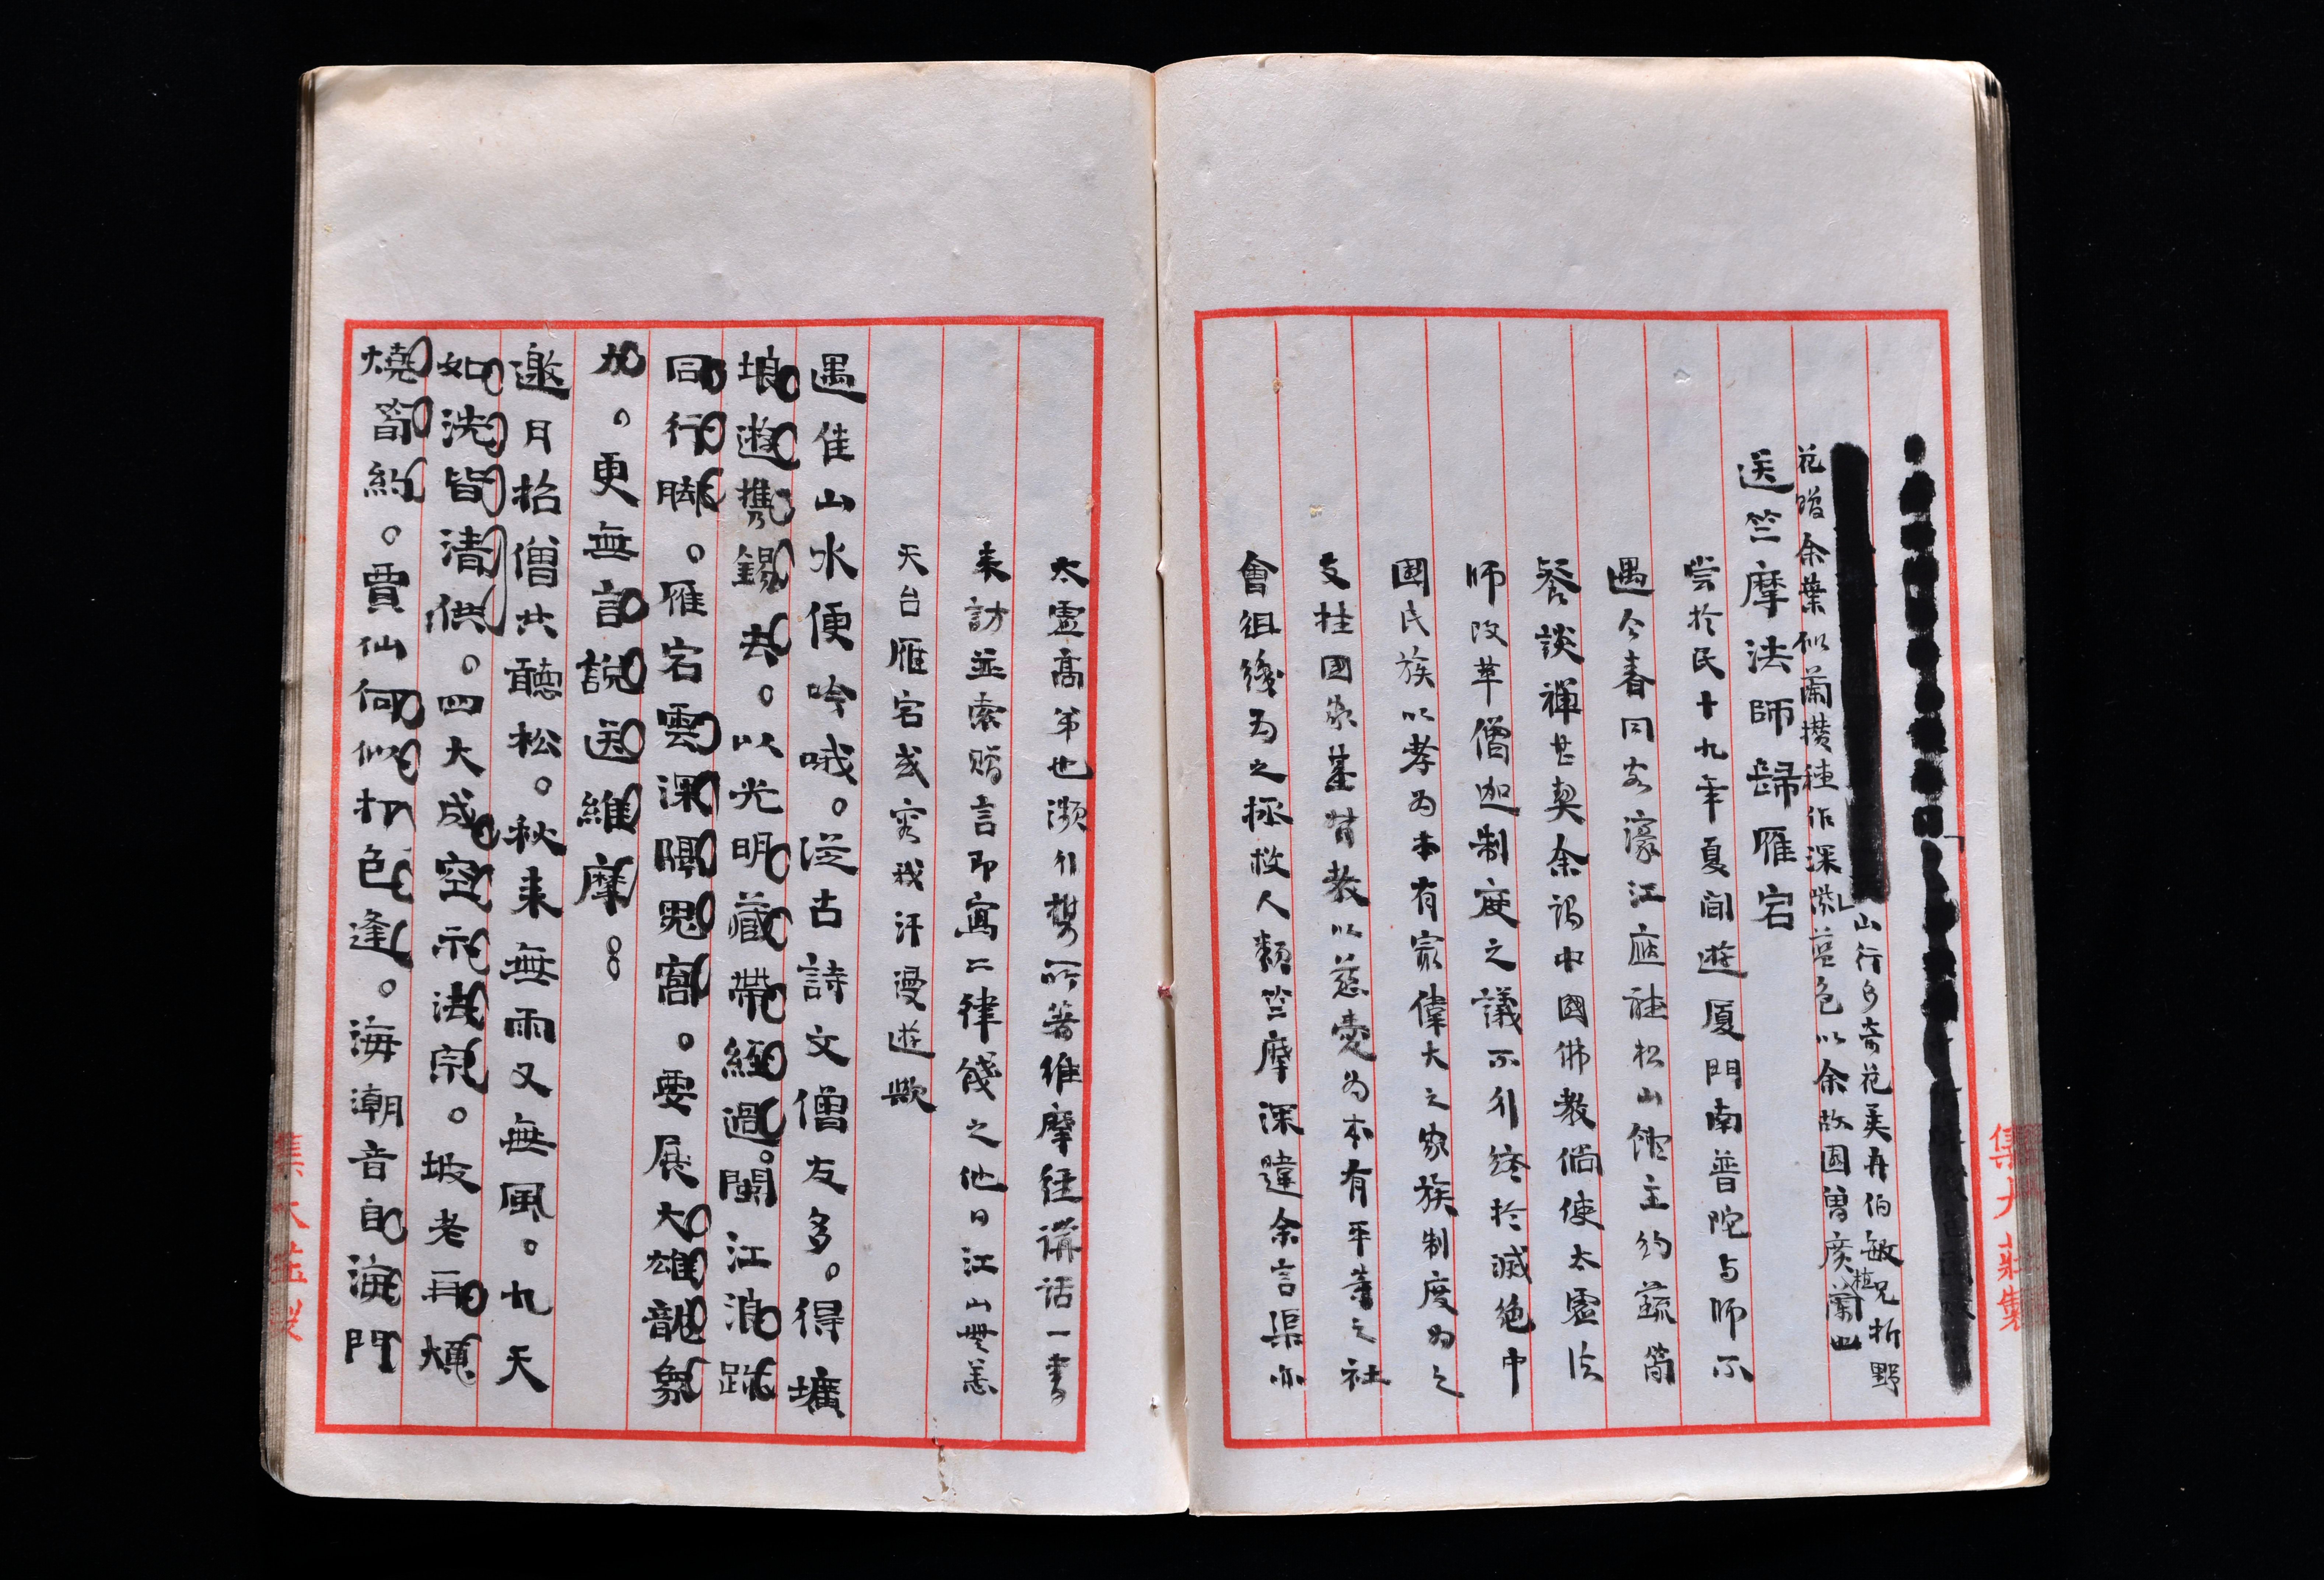 山行多奇花異卉伯敏兄折野
花贈余葉似蘭攢種作深紫藍色以余故園曾廣植蘭也
送竺摩法師歸雁宕
嘗於民十九年夏間遊厦門南普陀与師不
遇今春同客濠江應詼松山館主約蔬筍
餐談禪甚契余謂中國佛教倘使太虛法
師改革僧伽制度之議不行終於滅絕中
國民族以孝為本有家偉大之家族制度為之
支柱國家基督教以慈愛為本有平等之社
會徂後為之拯救人類竺摩深韙余言渠亦
太虛高第也瀕行携所著維摩經講話一書
來訪並索贈言即寫二律餞之他日江山無恙
天台雁宕或容我汗漫遊歟
遇佳山水便吟哦。從古詩文僧友多。得壙
埌遊攜錫去。以光明藏帶經過。閩江浪跡
同行脚。雁宕雲深隔鬼窩。要展大雄龍象
力。更無言說送維摩。
邀月招僧共聽松。秋來無雨又無風。九天
如洗皆清供。四大成空示法宗。坡老再煩
燒筍約。賈仙何似打包逢。海潮音自海門
集大莊製
集大莊製